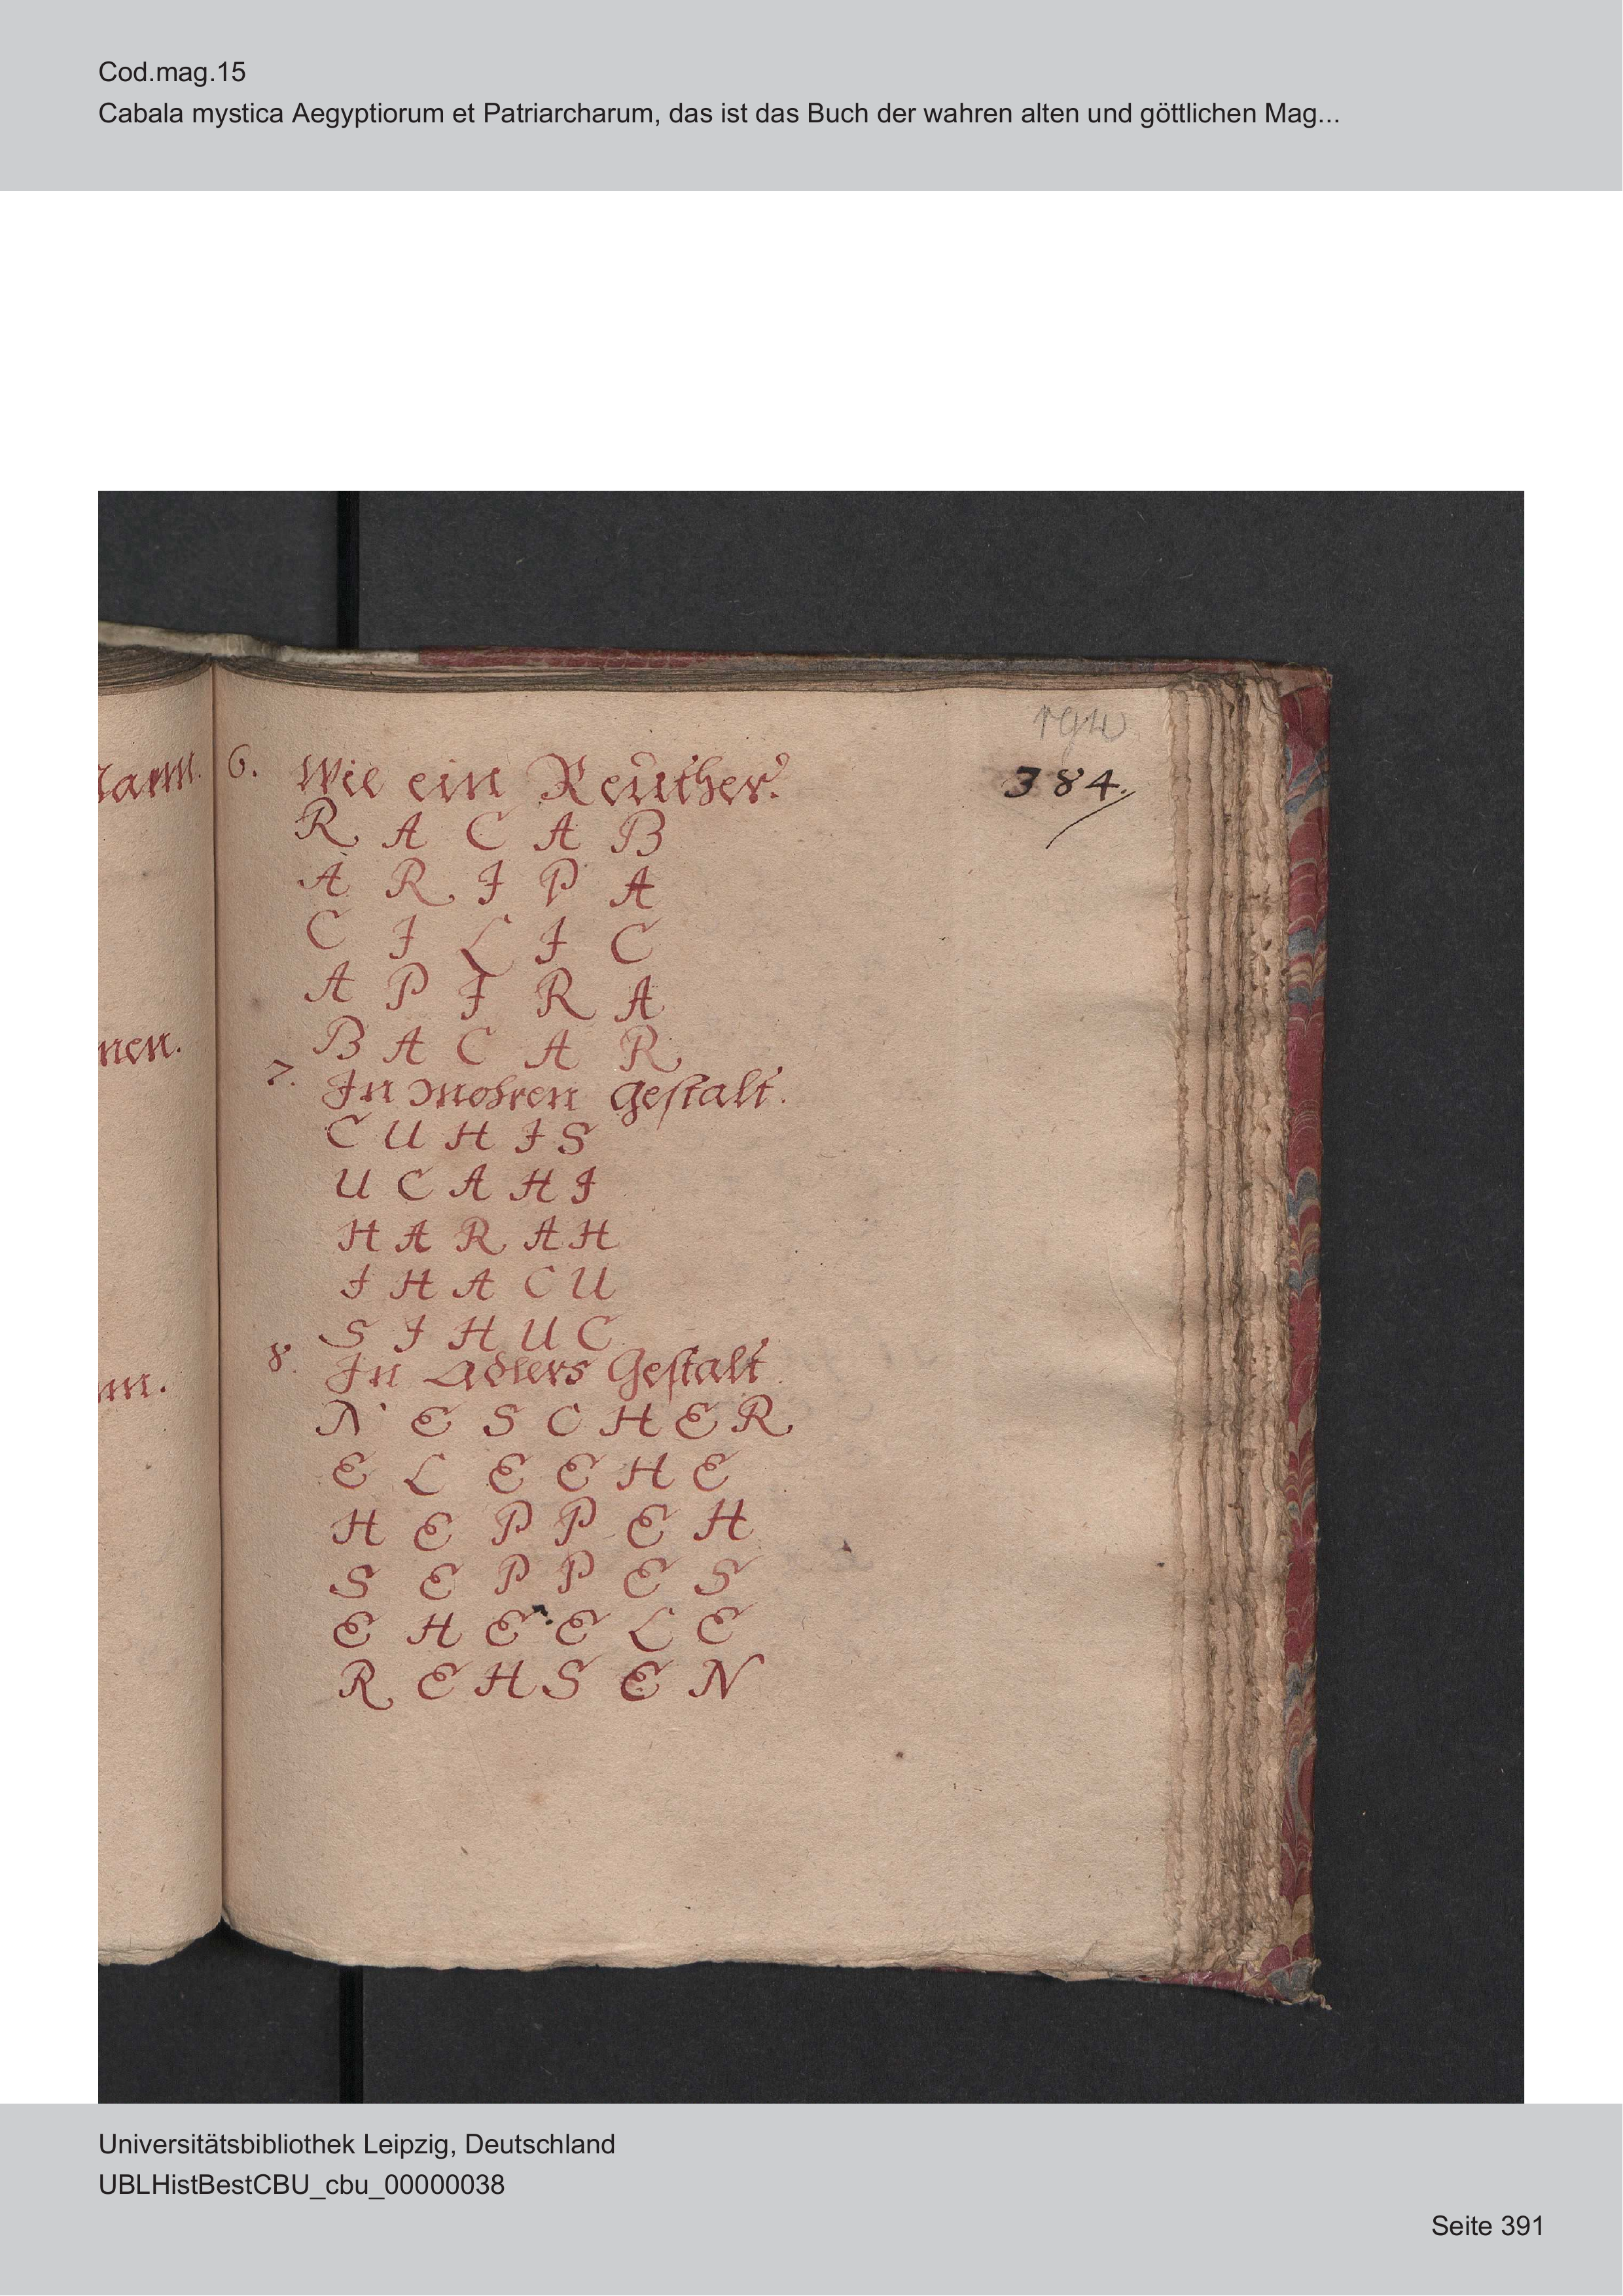 Cod.mag.15
Cabala mystica Aegyptiorum et Patriarcharum, das ist das Buch der wahren alten und göttlichen Mag...
384.
6. Wie ein Reuther.
R A C A B
A R I P A
C I L I C
A P I R A
B A C A R
7. In Mohren gestalt.
C U H I S
U C A H I
H A R A H
I H A C U
S I H U C
8. In Adlers Gestalt.
N E S C H E R
E L E E H E
H E P P E H
S E P P E S
E H E E L E
R E H S E N
nen.
Universitätsbibliothek Leipzig, Deutschland
UBLHistBestCBU_cbu_00000038
Seite 391